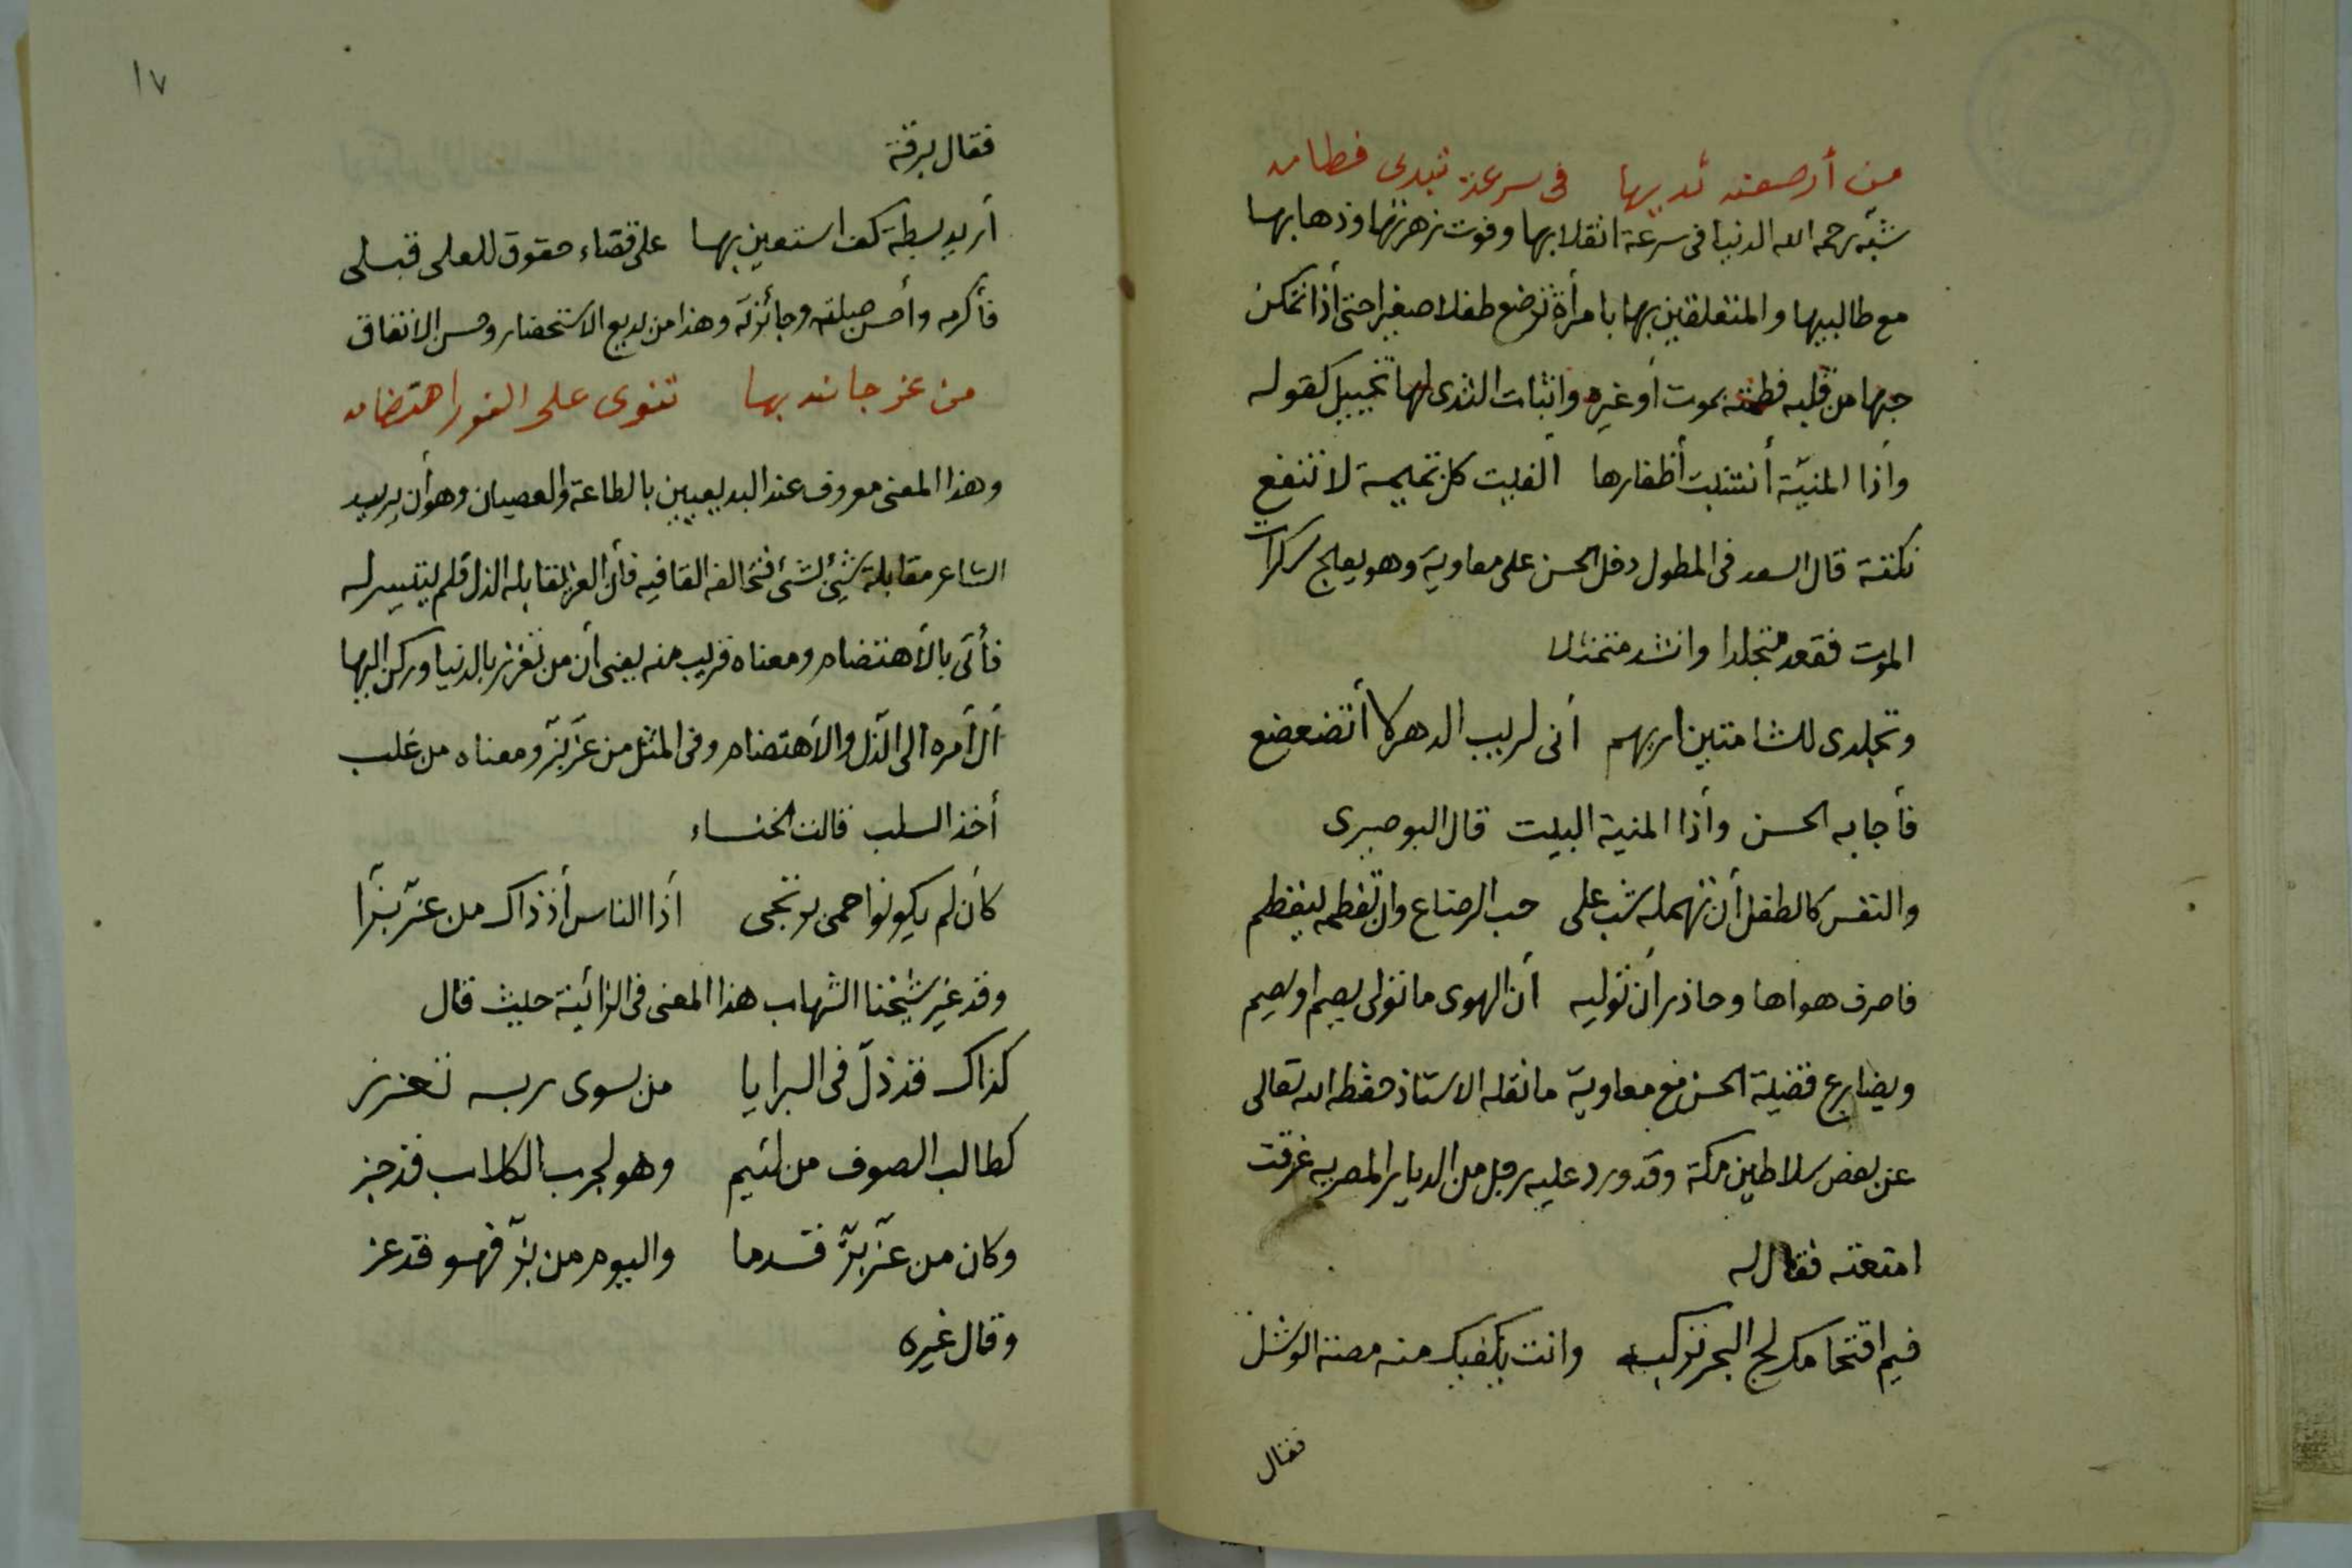 من أرضعته ثديها في سرعة تبدى فطامه
شبه رحمه الله الدنيا في سرعة انقلابها وفوت زهرتها وذهابها
مع طالبيها والمتعلقين بها بامرأة ترضع طفلا صغيرا حتى أذا تمكن
حبها من قلبه فطمته بموت أو غيره وأثبات الثدى لها تخييل كقوله
وأذا المنيّة أنشبت أظفارها ألفيت كل تميمة لا تنفع
نكتة قال السعد في المطول دخل الحسن على معاوية وهو يعالج سكرات
الموت فقعد متجلدا وانشد متمثلا
وتجلدى للشامتين اريهم أنى لريب الدهر لا أتضعضع
فأجابه الحسن وأذا المنية البيت قال البوصيرى
والنفس كالطفل أن تهمله شب على حب الرضاع وان تفطمه ينفطم
فاصرف هواها وحاذر أن توليه أن الهوى ما تولى يصم او يصم
ويضارع قضية الحسن مع معاوية ما نقله الاستاذ حفظه الله تعالى
عن بعض سلاطين مكة وقد ورد عليه رجل من الديار المصريه غرقت
امتعته فقال له
فيم اقتحامك لج البحر تركبه وانت يكفيك منه مصة الوشل
فقال
١٧
فقال برقة
أريد بسطة كف استعين بها على قضاء حقوق للعلى قبلى
فأكرمه وأحسن صلته وجائزته وهذا من بديع الاستحضار وحسن الاتفاق
من عز جانبه بها تنوى على الفور اهتضامه
وهذا المعنى معروف عند البديعيين بالطاعة والعصيان وهو أن يريد
الشاعر مقابلة شئ لشئ فتخالفه القافيه فأن العز يقابله الذل فلم يتيسر له
فأتى بالأهتضام ومعناه قريب منه يعنى أن من تعزز بالدنيا وركن اليها
أل أمره الى الذل والأهتضام وفى المثل من عزّ بزّ ومعناه من غلب
أخذ السلب قالت الخنساء
كأن لم يكونوا حمى يرتجى أذا الناس أذ ذاك من عزّ بزّا
وقد غير شيخنا الشهاب هذا المعنى فى الزائية حيث قال
كذاك قد ذلّ فى البرايا من بسوى ربه تعزز
كطالب الصوف من لئيم وهو لجرب الكلاب قد جز
وكان من عزّ بزّ قدما واليوم من بزّ فهو قد عز
وقال غيره